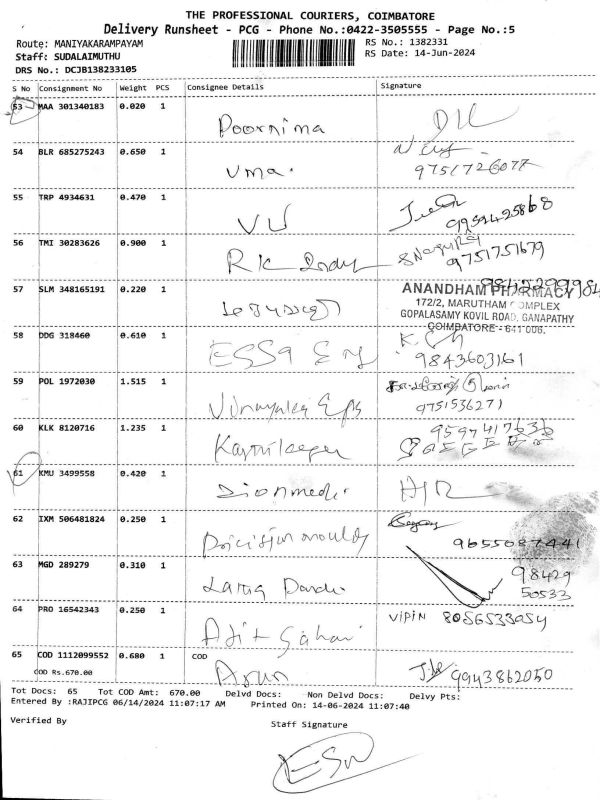 THE PROFESSIONAL COURIERS, COIMBATORE
Delivery Runsheet - PCG - Phone No.:0422-3505555 - Page No.:5
Route: MANIYAKARAMPAYAM RS No.: 1382331
Staff: SUDALAIMUTHU RS Date: 14-Jun-2024
DRS No.: DCJB138233105
S No Consignment No Weight PCS Consignee Details Signature
53 MAA 301340183 0.020 1 Poornima
54 BLR 685275243 0.650 1 Uma. 9751726077
55 TRP 4934631 0.470 1 VU 9952425868
56 TMI 30283626 0.900 1 RK 9751751679
57 SLM 348165191 0.220 1
ANANDHAM PHARMACY
172/2, MARUTHAM COMPLEX
GOPALASAMY KOVIL ROAD, GANAPATHY
COIMBATORE - 641 006.
58 DDG 318460 0.610 1 ESSa Eng 9843603161
59 POL 1972030 1.515 1 Vinayaka 9751536271
60 KLK 8120716 1.235 1 9597417636
61 KMU 3499558 0.420 1
62 IXM 506481824 0.250 1 9655087441
63 MGD 289279 0.310 1 98429
50533
64 PRO 16542343 0.250 1 VIPIN 8056533054
65 COD 1112099552 0.680 1 COD Arun 9943862050
COD Rs.670.00
Tot Docs: 65 Tot COD Amt: 670.00 Delvd Docs: Non Delvd Docs: Delvy Pts:
Entered By :RAJIPCG 06/14/2024 11:07:17 AM Printed On: 14-06-2024 11:07:40
Verified By Staff Signature